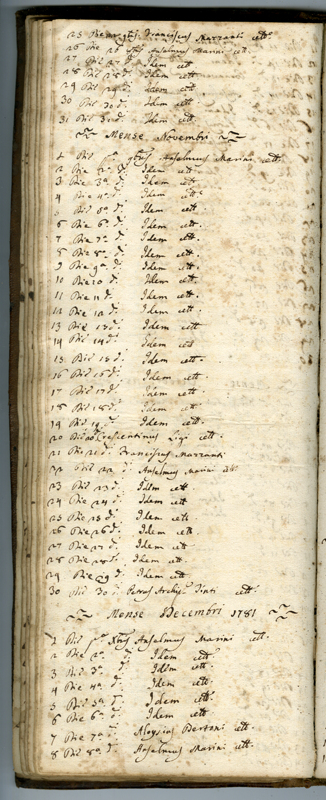 25 Die 25 d. Franciscus Marzanti cett.
26 Die 26 d. Anselmus Marini cett.
27 Die 27 d. Idem cett
28 Die 28 d. Idem cett
29 Die 29 d. Idem cett
30 Die 30 d. Idem cett
31 Die 31 d. Idem cett
Mense Novembri
1 Die pa Anselmus Marini cett.
2 Die 2a d. Idem cett
3 Die 3a d. Idem cett
4 Die 4a d. Idem cett
5 Die 5a d. Idem cett
6 Die 6a d. Idem cett.
7 Die 7a d. Idem cett.
8 Die 8a d. Idem cett
9 Die 9a d. Idem cett.
10 Die 10 d. Idem cett
11 Die 11 d. Idem cett.
12 Die 12 d. Idem cett.
13 Die 13 d. Idem cett
14 Die 14 d. Idem cett
15 Die 15 d. Idem cett.
16 Die 16 d. Idem cett.
17 Die 17 d. Idem cett.
18 Die 18 d. Idem cett.
19 Die 19 d. Idem cett.
20 Die 20 Crescentinus cett.
21 Die 21 d. Franciscus Marzanti
22 Die 22 d. Anselmus Marini cett
23 Die 23 d. Idem cett
24 Die 24 d. Idem cett
25 Die 25 d. Idem cett.
26 Die 26 d. Idem cett.
27 Die 27 d. Idem cett
28 Die 28 d. Idem cett
29 Die 29 d. Idem cett
30 Die 30 d. Petrus cett.
Mense Decembri 1781
1 Die pa Anselmus Marini cett.
2 Die 2a d. Idem cett
3 Die 3a d. Idem cett
4 Die 4a d. Idem cett
5 Die 5a d. Idem cett
6 Die 6a d. Idem cett
7 Die 7a d. Aloysius Bertani cett.
8 Die 8a d. Anselmus Marini cett.